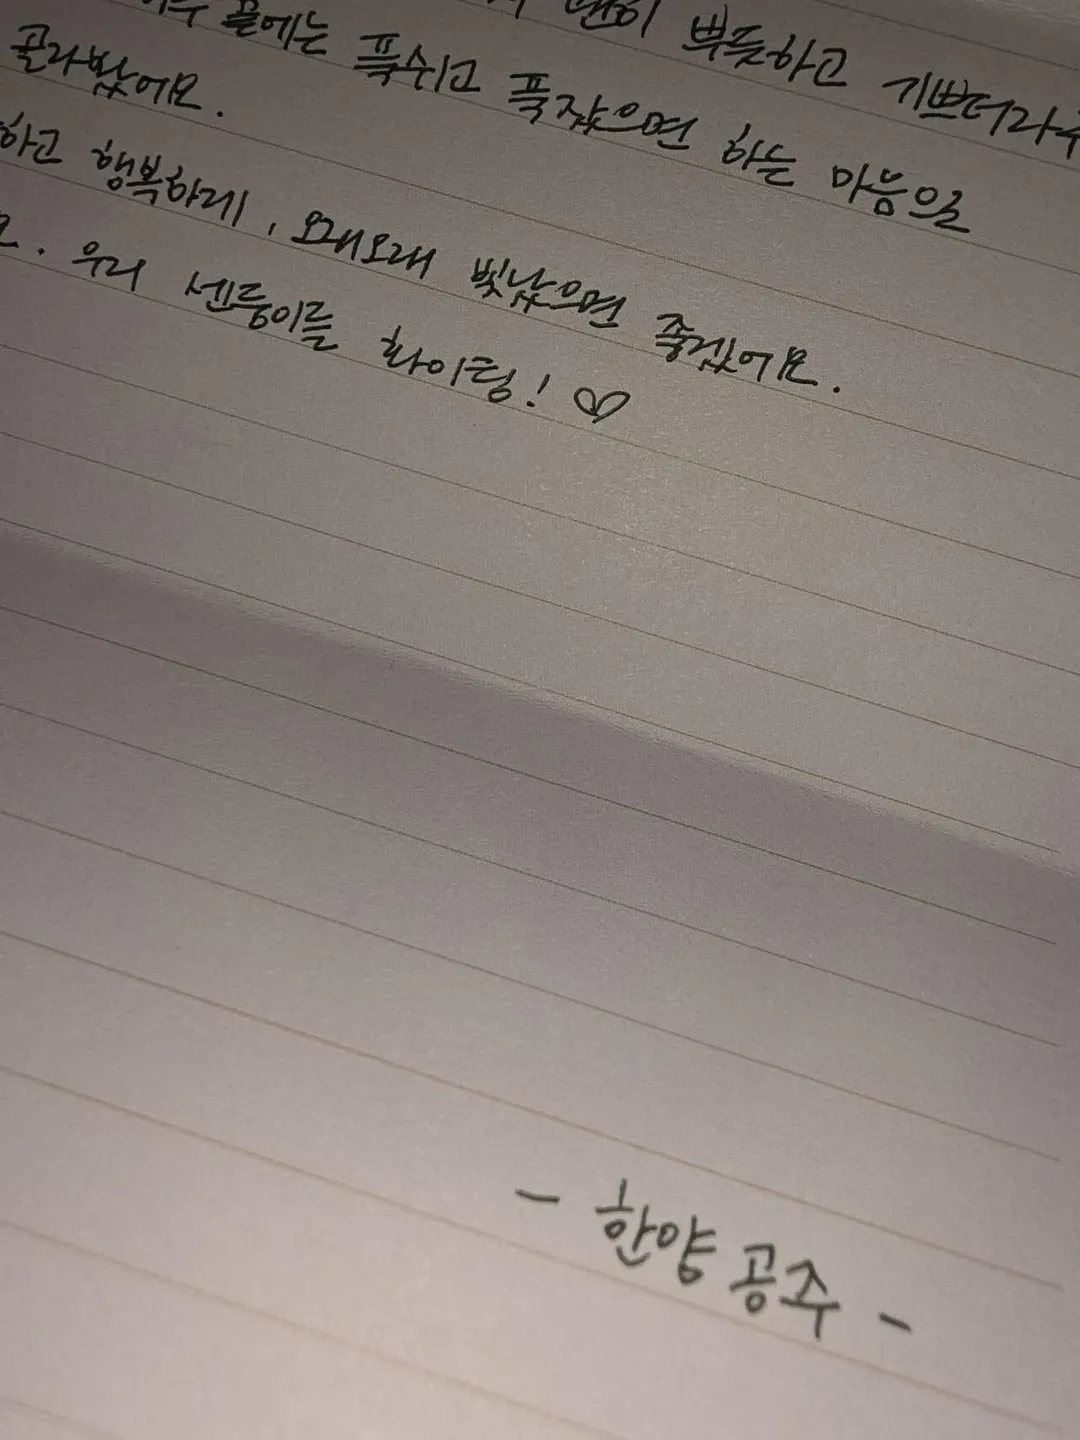 뿌듯하고 기쁘더라구
끝에는 푹쉬고 푹잤으면 하는 마음으로
골라봤어요.
하고 행복하게, 오래오래 빛났으면 좋겠어요.
우리 센둥이들 화이팅! ♡
- 한양 공주 -